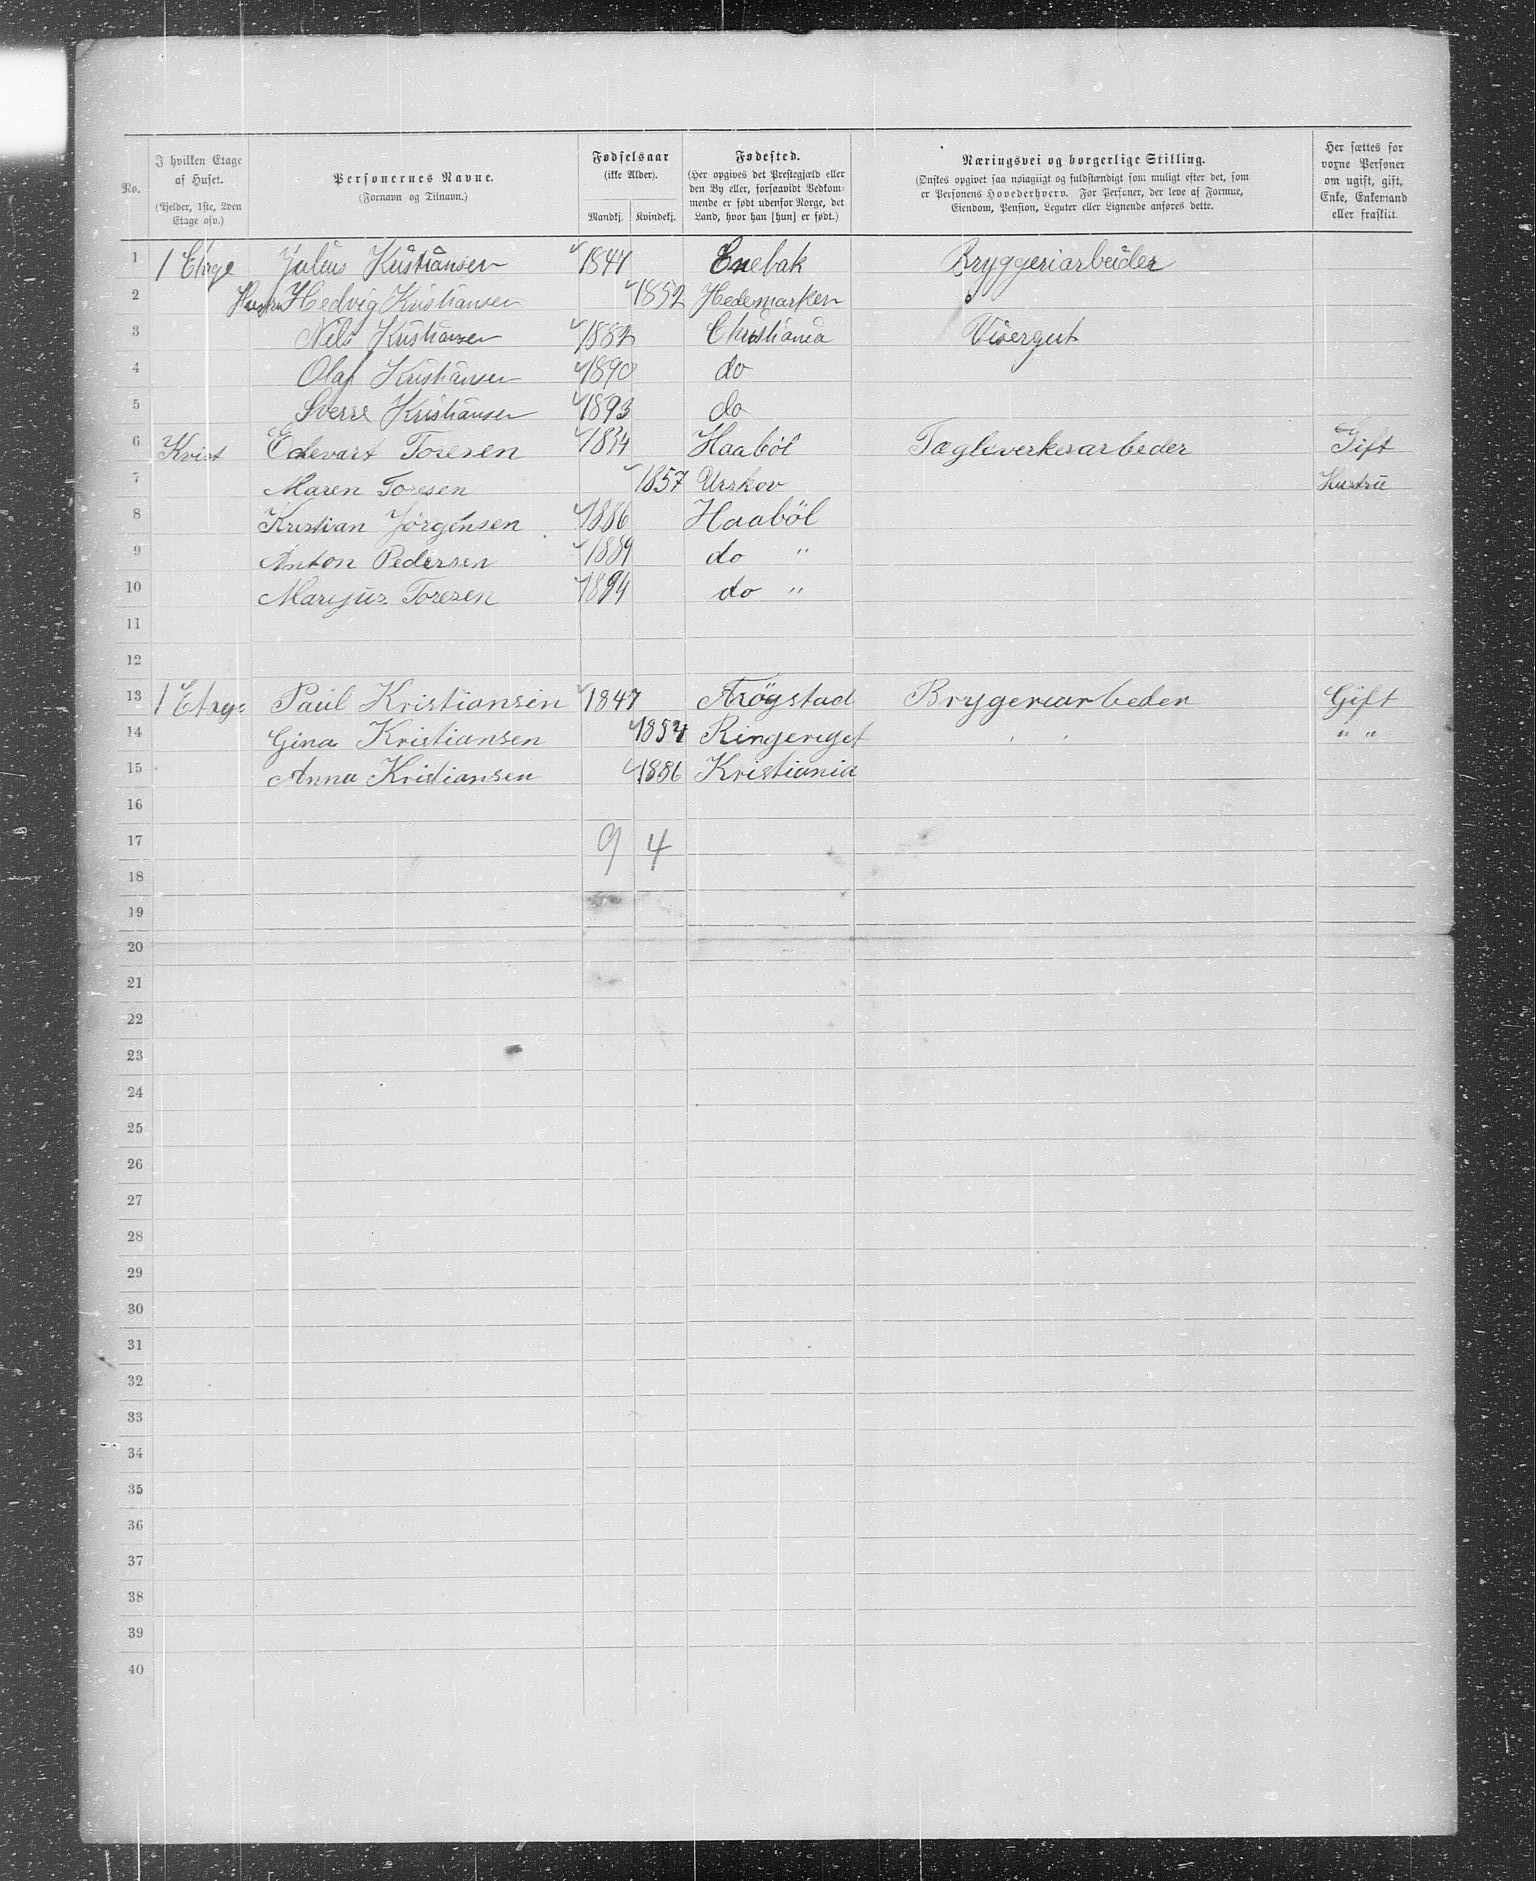 No. I hvilken Etage af Huset. (Kjelder, 1ste, 2den Etage osv.) Personernes Navne. (Fornavn og Tilnavn.) Fødselsaar (ikke Alder). Mandkj. Kvindekj. Fødested. (Her opgives det Prestegjæld eller den By eller, forsaavidt Vedkommende er født udenfor Norge, det Land, hvor han [hun] er født.) Næringsvei og borgerlige Stilling. (Ønskes opgivet saa nøiagtigt og fuldstændigt som muligt efter det, som er Personens Hovederhverv. For Personer, der leve af Formue, Eiendom, Pension, Legater eller Lignende anføres dette. Her sættes for voxne Personer om ugift, gift, Enke, Enkemand eller fraskilt.
1 1 Etage Julius Kristiansen 1847 Enebak Bryggeriarbeider
2 Hustru Hedvig Kristiansen 1852 Hedemarken
3 Nils Kristiansen 1882 Christiania Visergut
4 Olaf Kristiansen 1890 do
5 Sverre Kristiansen 1893 do
6 Kvist Edevart Toresen 1834 Haaböl Tægleverkesarbeder Gift
7 Maren Toresen 1857 Urskov Hustru
8 Kristian Jørgensen 1886 Haaböl
9 Anton Pedersen 1889 do "
10 Marijus Toresen 1894 do "
11
12
13 1 Etage Paul Kristiansen 1847 Trögstad Brygeriarbeder Gift
14 Gina Kristiansen 1854 Ringeriget " "
15 Anna Kristiansen 1886 Kristiania
16
17 9 4
18
19
20
21
22
23
24
25
26
27
28
29
30
31
32
33
34
35
36
37
38
39
40